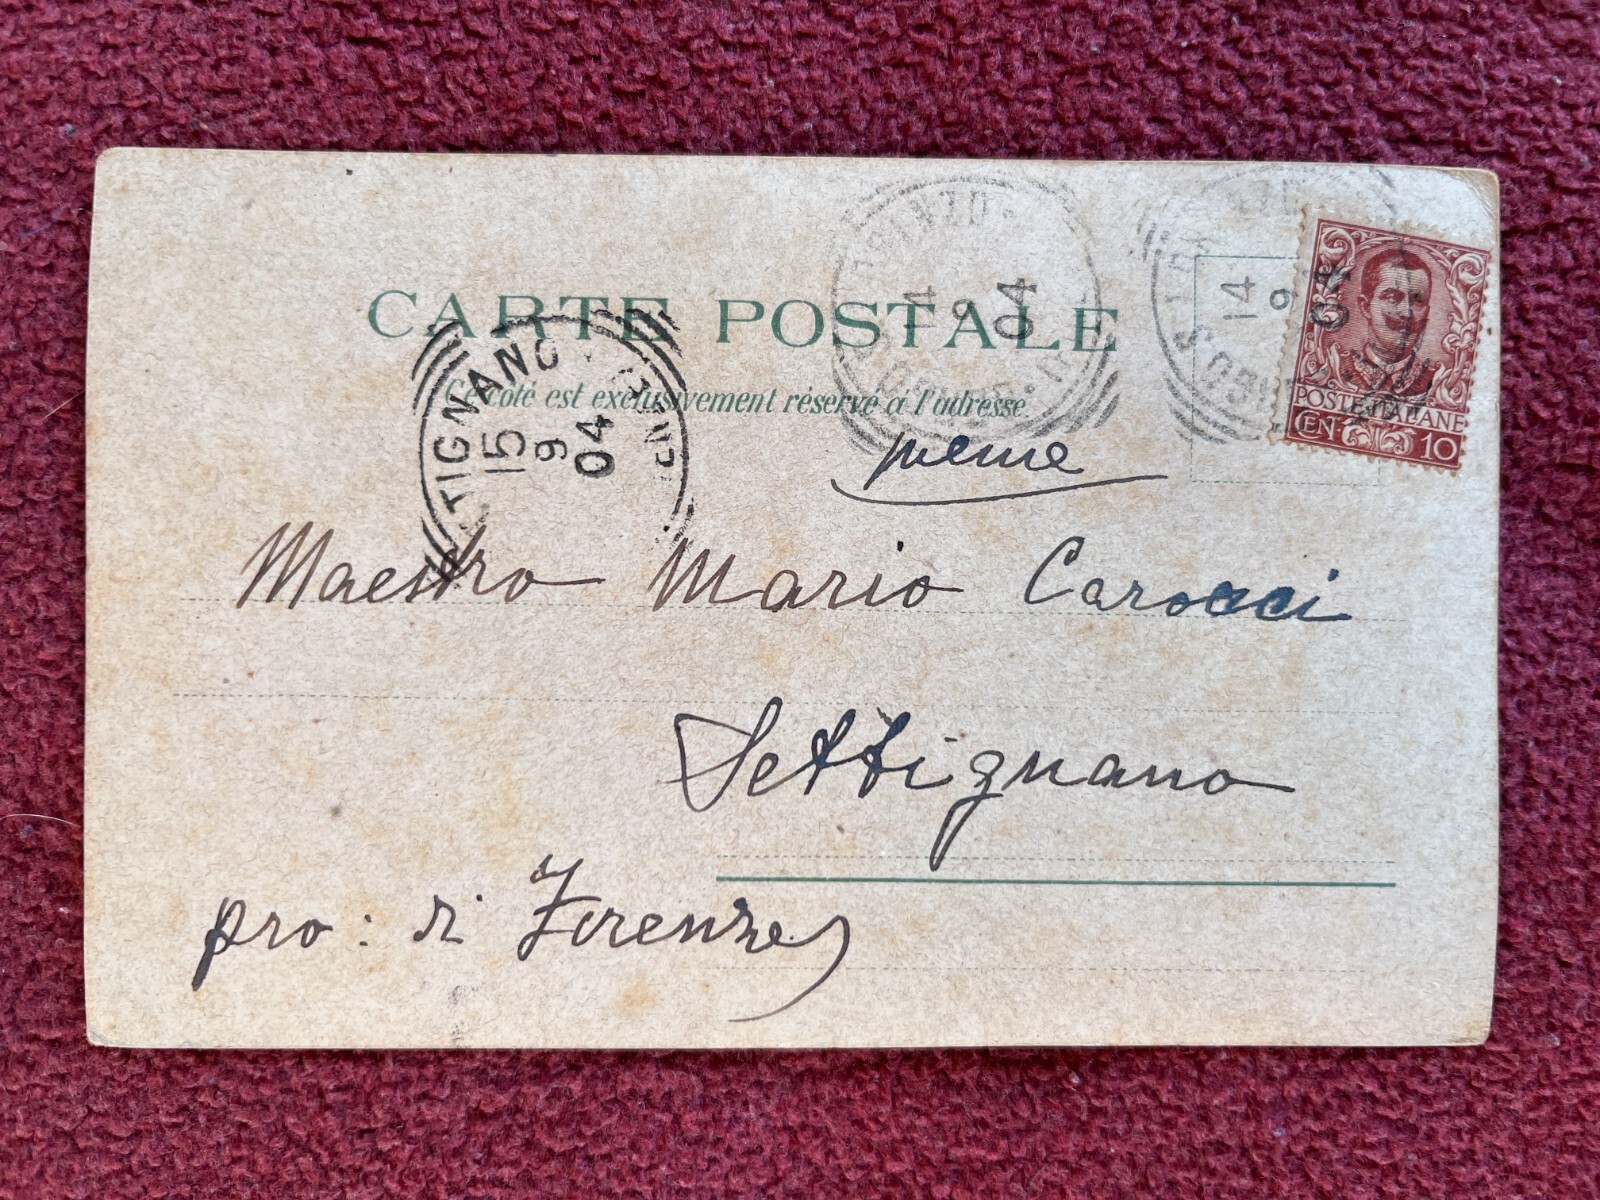 CARTE POSTALE
Ce côté est exclusivement réservé à l'adresse
TIGNANO
15
9
04
14
9
04
14
9
04
POSTE ITALIANE
CEN 10
preme
Maestro Mario Carocci
Settignano
pro: di Firenze